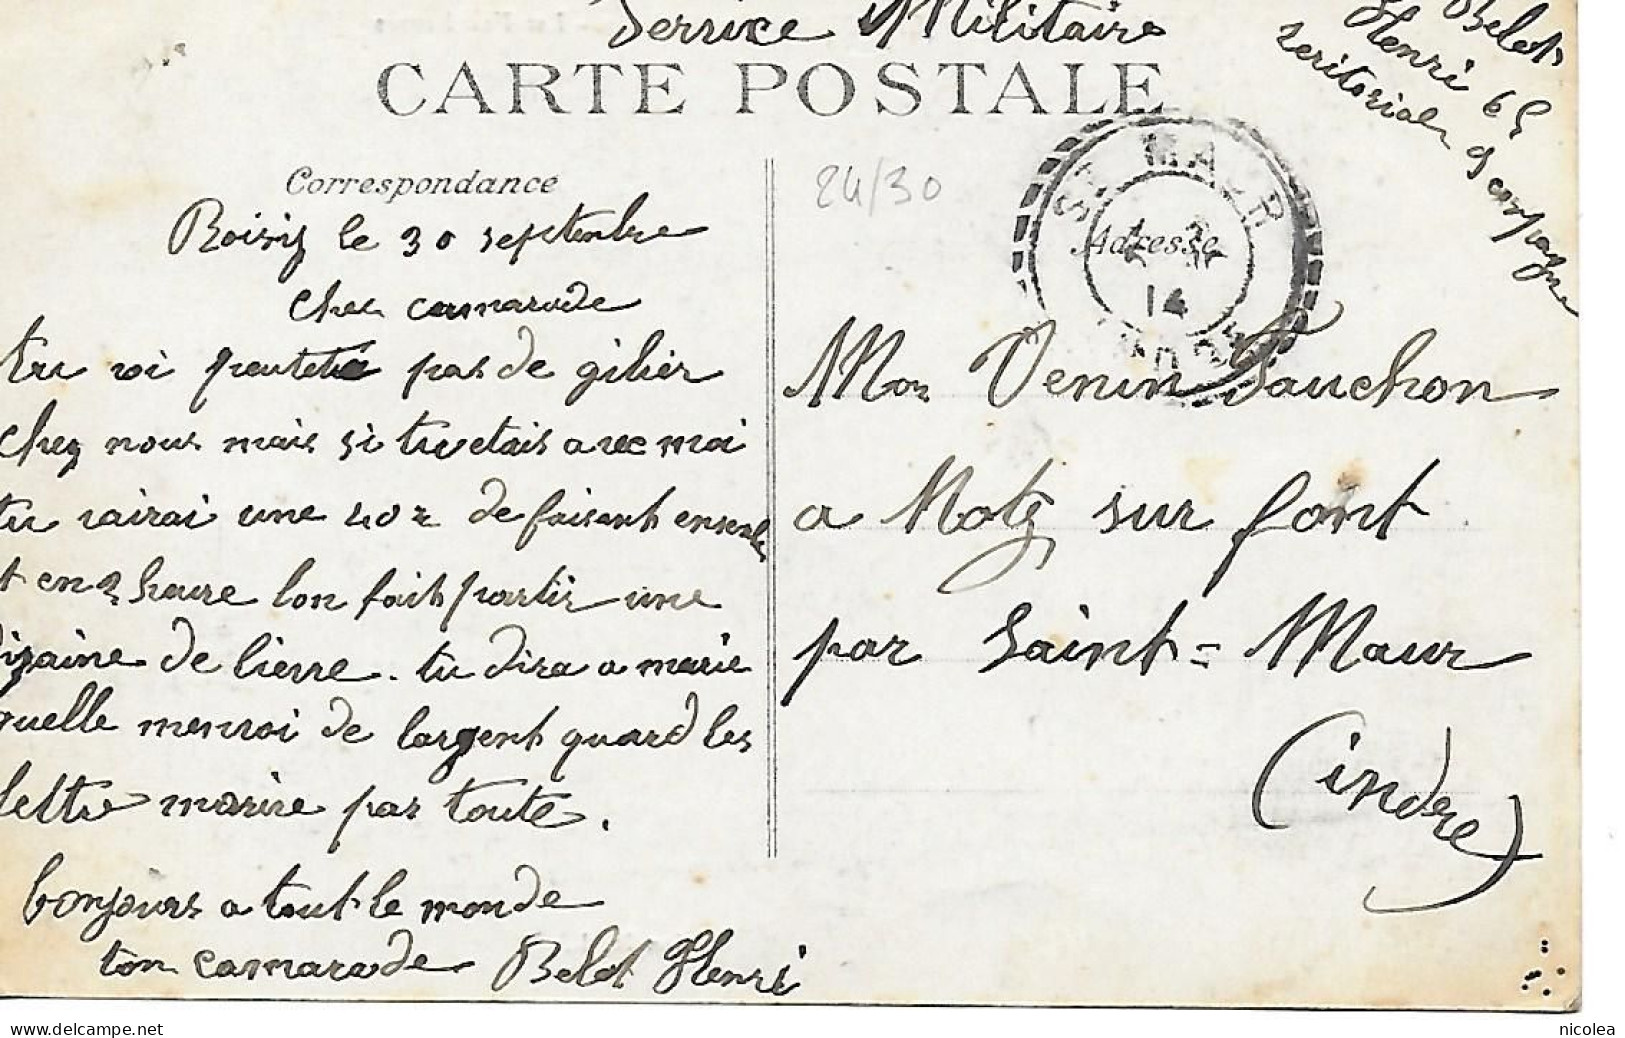 Service Militaire
Belot
Henri 65
teritorial
CARTE POSTALE
Correspondance
24/30
ST MAUR
Adresse
14
INDRE
Roisiy le 30 septenbre
cher camarade
tu voi peutetre pas de gibier
chez nous mais si tu etais avec moi
tu vairai une 40z de faisent ensenble
et en 2 heure lon fait partir une
dizaine de lievre. tu dira a marie
quelle menvoi de largent quard les
lettre marive par toute.
bonjours a tout le monde
ton camarade Belot Henri
Mor Venin Pauchon
a Notz sur font
par Saint=Maur
(indre)
nicolea
www.delcampe.net